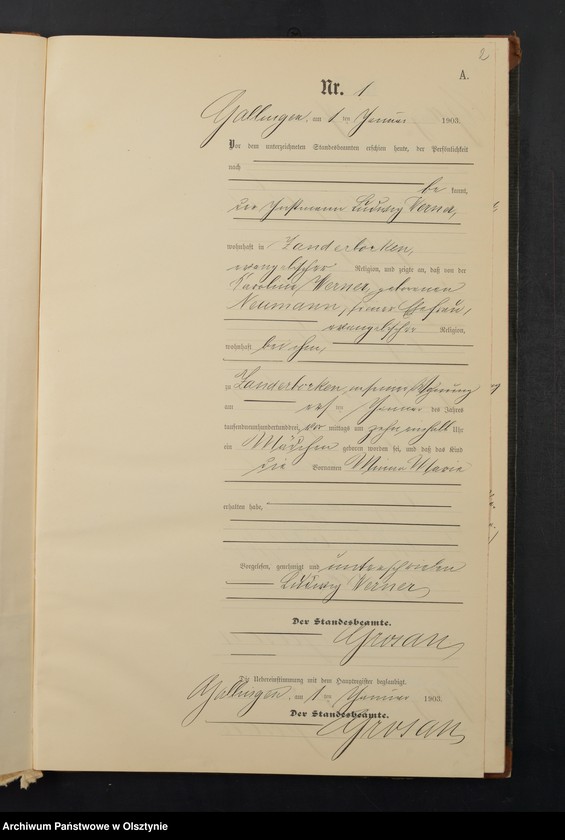 2
A.
Nr. 1
Gallingen, am 1 ten Januar 1903.
Vor dem unterzeichneten Standesbeamten erschien heute, der Persönlichkeit
nach
be kannt,
der Instmann Ludwig Werner,
wohnhaft in Landerborken,
evangelischer Religion, und zeigte an, daß von der
Karoline Werner, geborenen
Neumann, seiner Ehefrau,
evangelischer Religion,
wohnhaft bei ihm,
zu Landerborken, in seiner Wohnung
am ersten Januar des Jahres
tausendneunhundertunddrei, vor mittags um zehn einhalb Uhr
ein Mädchen geboren worden sei, und daß das Kind
die Vornamen Minna Marie
erhalten habe.
Vorgelesen, genehmigt und unterschrieben
Ludwig Werner
Der Standesbeamte.
Grosan
Die Uebereinstimmung mit dem Hauptregister beglaubigt.
Gallingen, am 1 ten Januar 1903.
Der Standesbeamte.
Grosan
Archiwum Państwowe w Olsztynie